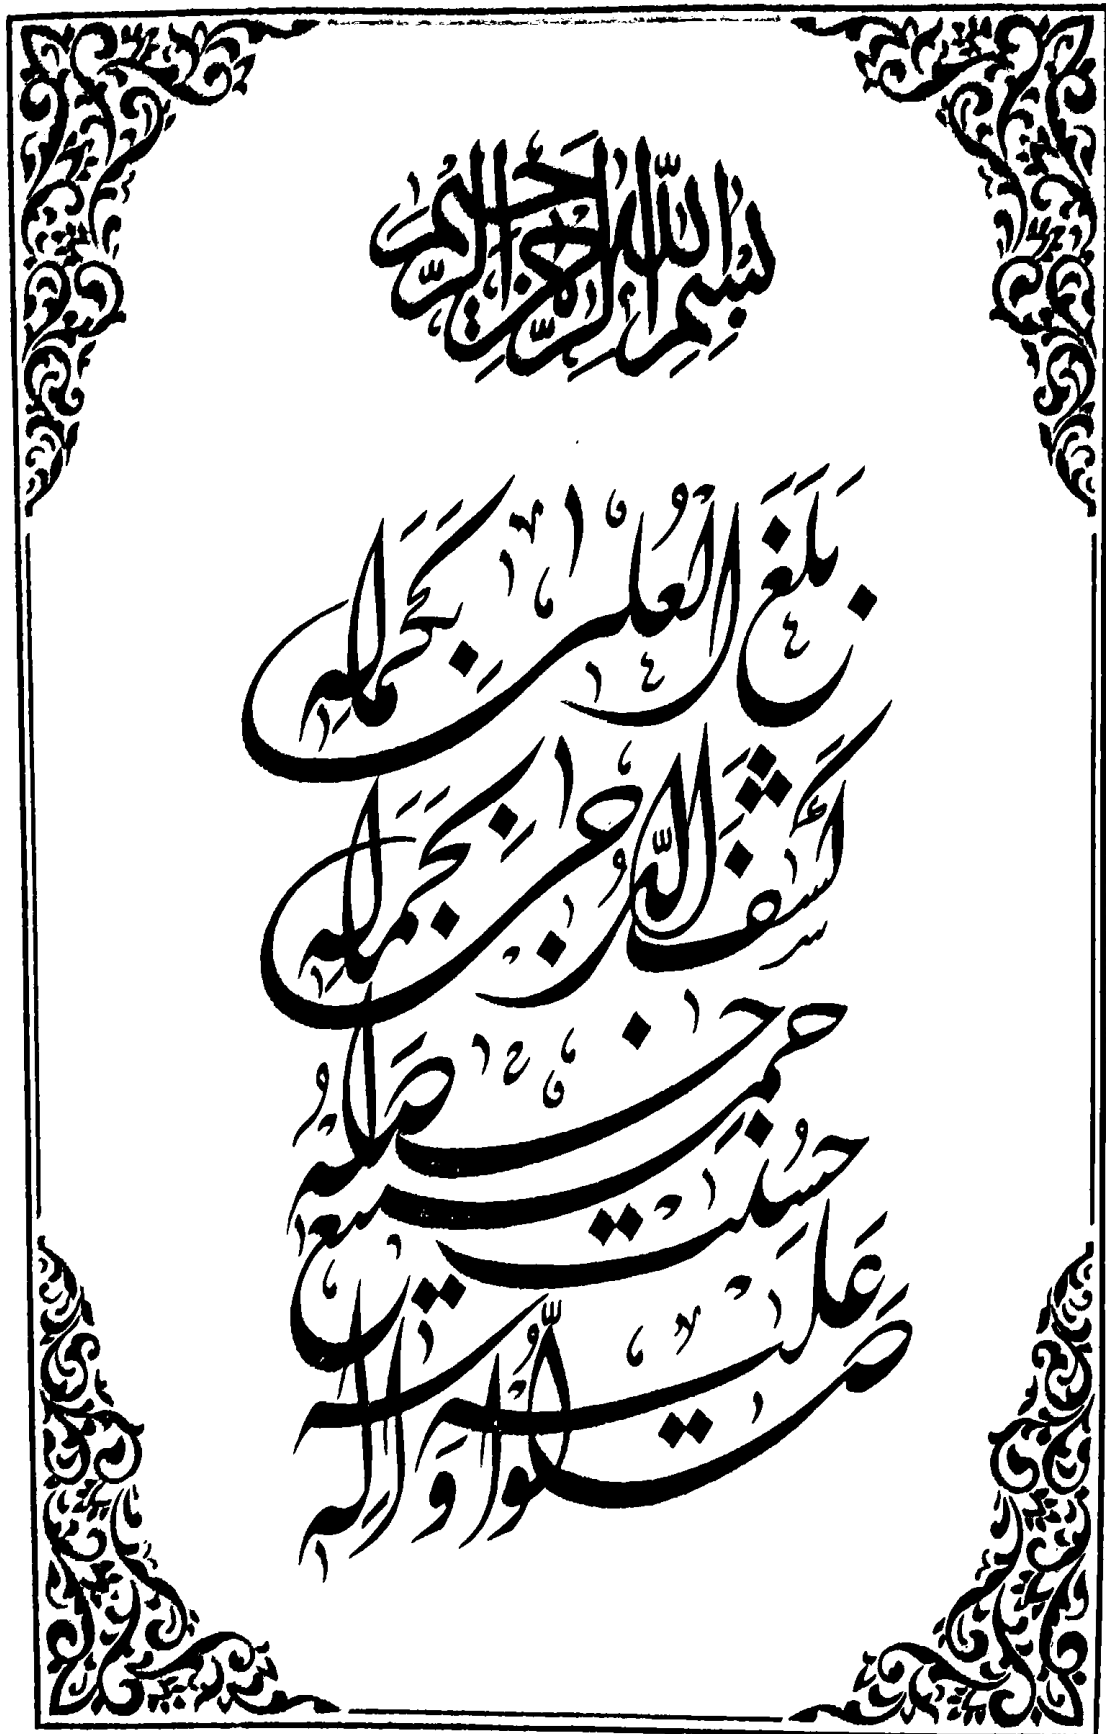 بِسْمِ اللّٰهِ الرَّحْمٰنِ الرَّحِيْمِ
بَلَغَ الْعُلىٰ بِكَمَالِهٖ
كَشَفَ الدُّجىٰ بِجَمَالِهٖ
حسنت جميع خصالهٖ
صلّوا عليه وآلهٖ